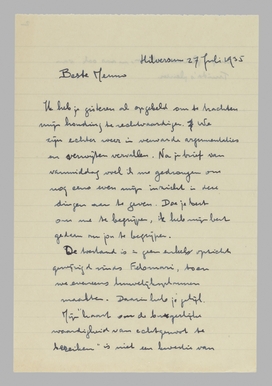 Hilversum 27 Juli 1935
Beste Menno
Ik heb je gisteren al opgebeld om te trachten
mijn houding te rechtvaardigen. We
zijn echter weer in verwarde argumentaties
en verwijten vervallen. Na je brief van
vanmiddag voel ik me gedrongen om
nog eens even mijn inzicht in deze
dingen aan te geven. Doe je best
om me te begrijpen, ik heb mijn best
gedaan om jou te begrijpen.
De toestand is in geen enkel opzicht
gewijzigd sinds Februari, toen
we eveneens huwelijksplannen
maakten. Daarin heb je gelijk.
Mijn "kaart om de burgerlijke
waardigheid van echtgenoot te
bereiken" is niet een kwestie van